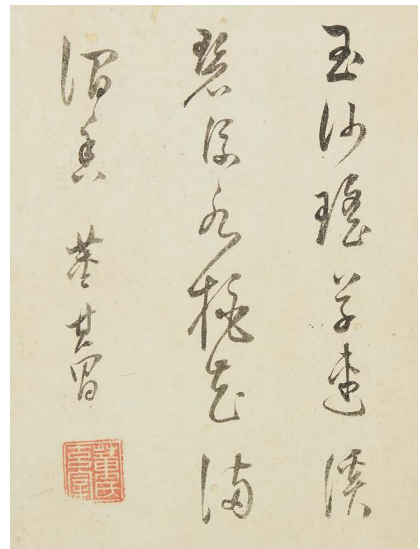 玉沙瑤草連溪
碧流水桃花滿
澗香 董其昌
董氏玄宰